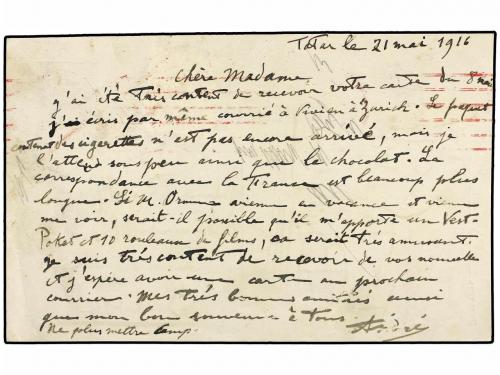 Tatar le 21 mai 1916
Chère Madame
j'ai été très content de recevoir votre carte du 8 mai
j'ai écris par même courrié à Vivien à Zurich. Le paquet
contenet des cigarettes n'est pas encore arrivé, mais je
l'attend sous peu ainsi que le chocolat. La
correspondance avec la France est beaucoup plus
longue. Si M. vienne en vacance et vient
me voir, serait-il possible qu'il m'apporte un Vest-
Poket et 10 rouleaux de films, ca serait très amusant.
je suis très content de recevoir de vos nouvelle
et j'espère avoir une carte au prochain
courrier. Mes très bonnes amitiés ainsi
que mon bon souvenir à tous. André
Ne plus mettre camp.